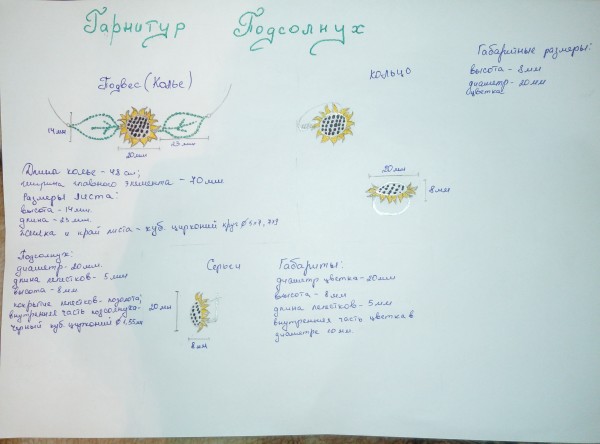 Гарнитур Подсолнух
Подвес (Колье)
14 мм
20мм
23 мм
Длина колье - 48 см;
ширина главного элемента - 70 мм
Размеры листа:
высота - 14 мм.
длина - 23 мм.
и край листа - куб. цирконий круг
Подсолнух:
диаметр - 20 мм.
длина лепестков - 5 мм
высота - 8 мм
покрытие лепестков - позолота;
внутренняя часть подсолнуха -
чёрный куб. цирконий ϕ 1,55мм
КОЛЬЦО
Габаритные размеры:
высота - 8 мм
диаметр - 20мм
цветка
20мм
8 мм
Серьги
20 мм
8 мм
Габариты:
диаметр цветка - 20мм
высота - 8 мм
длина лепестков - 5 мм
внутренняя часть цветка в
диаметре 10 мм.